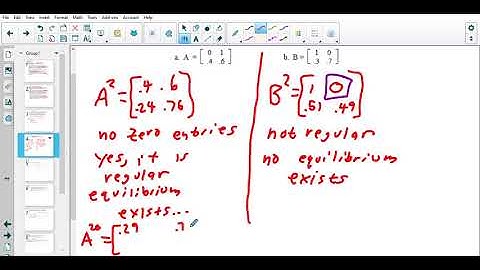 File Edit View Insert Format Tools Add-ons Help
Group1
a. A = [0 1
.4 .6]
b. B = [1 0
.3 0.7]
A² = [.4 .6
.24 .76]
no zero entries
yes, it is
regular
equilibrium
exists...
A²⁰ = [.29 .7
B² = [1 0
.51 .49]
not regular
no equilibrium
exists